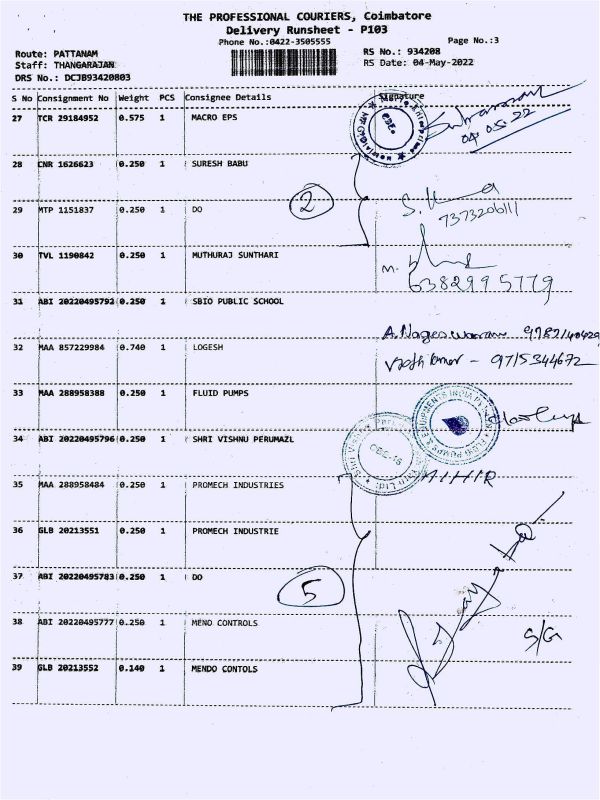 THE PROFESSIONAL COURIERS, Coimbatore
Delivery Runsheet - P103
Phone No.:0422-3505555
Page No.:3
Route: PATTANAM
RS No.: 934208
Staff: THANGARAJAN
RS Date: 04-May-2022
DRS No.: DCJB93420803
S No Consignment No Weight PCS Consignee Details Signature
27 TCR 29184952 0.575 1 MACRO EPS
04.05.22
28 CNR 1626623 0.250 1 SURESH BABU
2
29 MTP 1151837 0.250 1 DO
7373206111
30 TVL 1190842 0.250 1 MUTHURAJ SUNTHARI
M.
6382995779
31 ABI 20220495792 0.250 1 SBIO PUBLIC SCHOOL
A. Nageswaran
32 MAA 857229984 0.740 1 LOGESH
- 9715344672
33 MAA 288958388 0.250 1 FLUID PUMPS
34 ABI 20220495796 0.250 1 SHRI VISHNU PERUMAZL
CBE-16
35 MAA 288958484 0.250 1 PROMECH INDUSTRIES
MIHIR
36 GLB 20213551 0.250 1 PROMECH INDUSTRIE
37 ABI 20220495783 0.250 1 DO
5
38 ABI 20220495777 0.250 1 MENO CONTROLS
S/G
39 GLB 20213552 0.140 1 MENDO CONTOLS